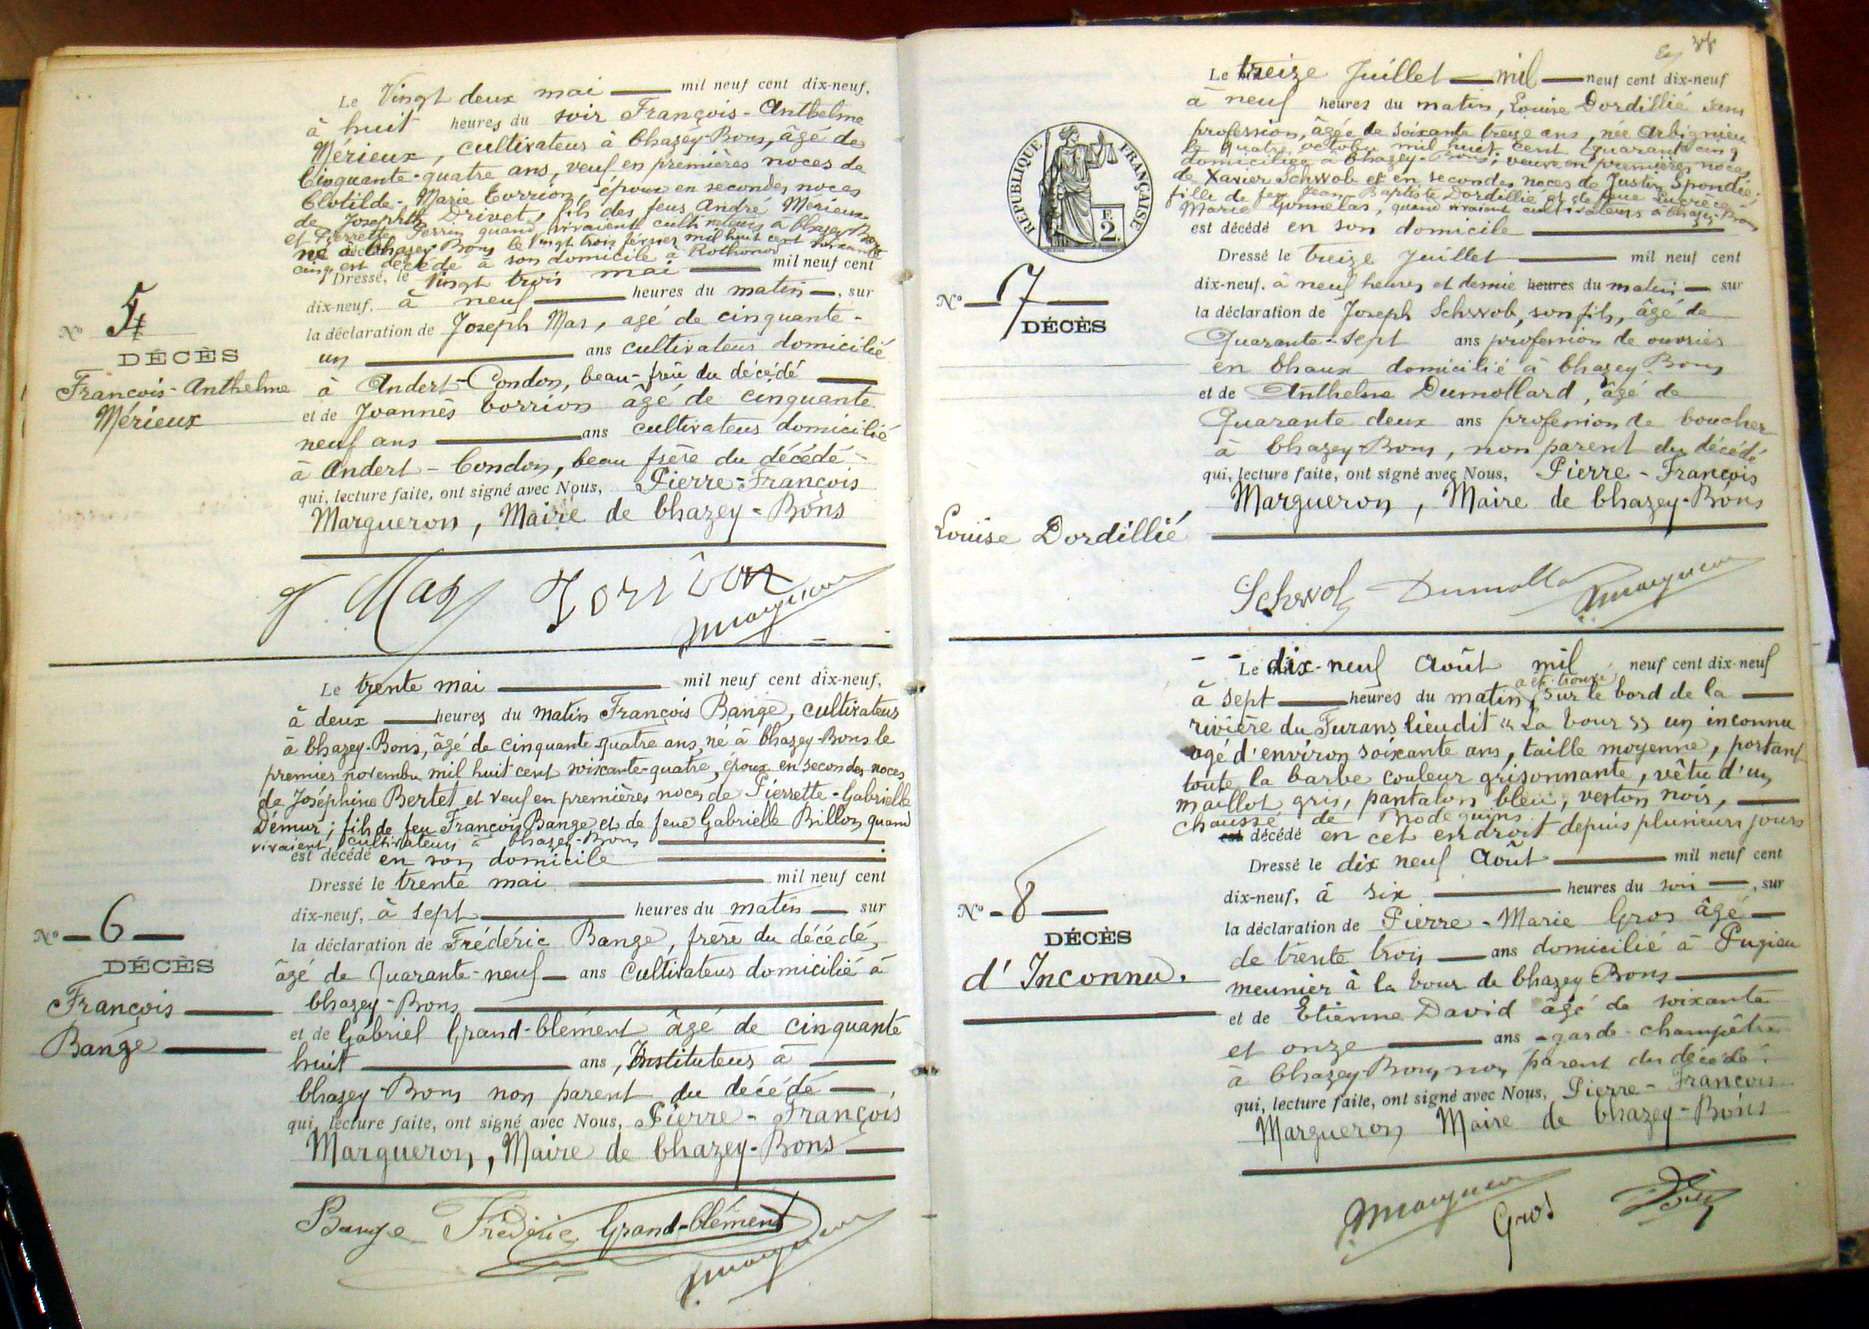 Le Vingt deux mai mil neuf cent dix-neuf,
à huit heures du soir François-Anthelme
Mérieux, cultivateur à Chazey-Bons, âgé de
Cinquante-quatre ans, veuf en premières noces de
Clotilde-Marie Corrion, époux en secondes noces
de Josephte Drivet, fils des feus André Mérieux
et Pierrette Perrin quand vivaient cultivateurs à Chazey-Bons
né à Chazey-Bons le vingt trois février mil huit cent soixante
cinq est décédé à son domicile à Rothonod
Dressé, le vingt trois mai mil neuf cent
dix-neuf, à neuf heures du matin, sur
la déclaration de Joseph Mas, agé de cinquante-
un ans cultivateur domicilié
à Andert-Condon, beau-frère du décédé
et de Joannès Corrion âgé de cinquante
neuf ans ans cultivateur domicilié
à Andert-Condon, beau frère du décédé
qui, lecture faite, ont signé avec Nous, Pierre-François
Margueron, Maire de Chazey-Bons
No 5
DÉCÈS
François-Anthelme
Mérieux
Corrion
Margueron
Le trente mai mil neuf cent dix-neuf,
à deux heures du matin François Bange, cultivateur
à Chazey-Bons, âgé de cinquante-quatre ans, né à Chazey-Bons le
premier novembre mil huit cent soixante-quatre, époux en secondes noces
de Joséphine Bertet et veuf en premières noces de Pierrette-Gabrielle
Démur; fils de feu François Bange et de feue Gabrielle Billon quand
vivaient cultivateurs à Chazey-Bons
est décédé en son domicile
Dressé le trente mai mil neuf cent
dix-neuf, à sept heures du matin sur
la déclaration de Frédéric Bange, frère du décédé,
âgé de Quarante-neuf ans cultivateur domicilié à
Chazey-Bons
et de Gabriel Grand-Clément âgé de cinquante
huit ans, Instituteur à
Chazey-Bons non parent du décédé,
qui, lecture faite, ont signé avec Nous, Pierre-François
Margueron, Maire de Chazey-Bons
No 6
DÉCÈS
François
Bange
Bange Frédéric Grand-Clément
Margueron
Le treize Juillet mil neuf cent dix-neuf
à neuf heures du matin, Louise Dordillié sans
profession, âgée de soixante treize ans, née Arbignieu
le quatre octobre mil huit cent quarante cinq
domiciliée à Chazey-Bons, veuve en premières noces
de Xavier Schwob et en secondes noces de Justin Spondié
fille de feu Jean Baptiste Dordillié et de feue Lucrèce
Marie quand vivaient cultivateurs à Chazey-Bons
est décédé en son domicile
Dressé le treize Juillet mil neuf cent
dix-neuf. à neuf heures et demie heures du matin sur
la déclaration de Joseph Schwob, son fils, âgé de
Quarante-sept ans profession de ouvrier
en Chaux domicilié à Chazey Bons
et de Anthelme Dumollard, âgé de
Quarante deux ans profession de boucher
à Chazey-Bons, non parent du décédé
qui, lecture faite, ont signé avec Nous, Pierre-François
Margueron, Maire de Chazey-Bons
RÉPUBLIQUE FRANÇAISE
2 F
No 7
DÉCÈS
Louise Dordillié
Schwob Dumollard Margueron
Le dix-neuf Août mil neuf cent dix-neuf
à sept heures du matin, a été trouvé sur le bord de la
rivière du Furans lieudit "La Cour" un inconnu
agé d'environ soixante ans, taille moyenne, portant
toute la barbe couleur grisonnante, vêtu d'un
maillot gris, pantalon bleu, veston noir,
chaussé de Brodequins
est décédé en cet endroit depuis plusieurs jours
Dressé le dix neuf Août mil neuf cent
dix-neuf, à six heures du soir, sur
la déclaration de Pierre-Marie Gros âgé
de trente trois ans domicilié à Pugieu
meunier à la Cour de Chazey Bons
et de Etienne David âgé de soixante
et onze ans garde-champêtre
à Chazey-Bons non parent du décédé
qui, lecture faite, ont signé avec Nous, Pierre-François
Margueron Maire de Chazey-Bons
No 8
DÉCÈS
d'Inconnu.
Margueron Gros